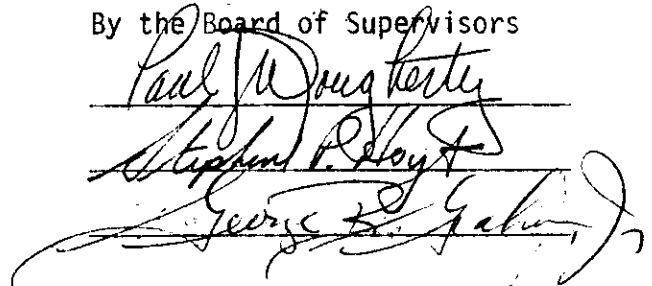 By the Board of Supervisors
Paul J. Dougherty
Stephen P. Hoyt
George R. Graham, Jr.